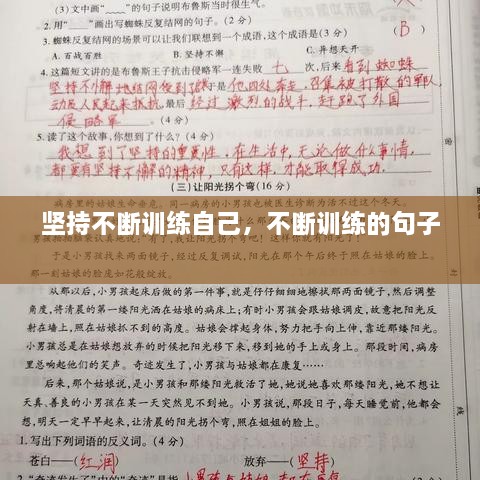 (3)文中画“﹏﹏”的句子说明布鲁斯当时很生气。
2.用“——”画出写蜘蛛反复结网的句子。(2分)
3.蜘蛛反复结网可以让我们联想到一个成语,这个成语是(3分)
(B)
A.百战百胜 B.坚持不懈 C.异想天开
4.这篇短文讲的是布鲁斯王子抗击侵略军一连失败七次,后来看到蜘蛛
坚持不懈地结网 于是他四处奔走,召集被打散的军队,
动员人民起来抵抗,最后经过激烈的战斗,赶跑了外国
侵略军。(4分)
5.读了这个故事,你想到了什么?(4分)
我想到了坚持的重要性,在生活中,无论做什么事情,
都要有坚持不懈的精神,只有这样,才能取得成功。
(三)让阳光拐个弯(16分)
坚持不断训练自己,不断训练的句子
于是小男孩找来两面镜子,经过反复调试,阳光在那个午后终于照在姑娘的
床上,照在姑娘的脸上,姑娘的脸庞如花般绽放。
从那以后,小男孩起床后做的第一件事,就是仔仔细细地擦拭那两面镜子,然后调整
角度,将清晨的第一缕阳光洒在姑娘的病床上;有时小男孩会跟姑娘调皮,故意把阳光反
射在墙上,照在姑娘抓不到的高度。姑娘会撑起身体,努力把手向上伸,靠近那缕阳光。
小男孩总是在姑娘想放弃的时候把阳光移下来,移到她的手上或身上。那段时间,病房
里总会响起他们的笑声。奇迹发生了,小男孩与姑娘都在康复……
后来,那个姑娘说,是小男孩和那缕阳光救活了她,她说她喜欢那缕阳光,她不想让
天真、善良的小男孩在某一天突然见不到她。小男孩说,那段日子,每天睡觉前,他都会
想,明天一定早早起来,让清晨的阳光拐个弯,照在姐姐的脸上。
1.写出下列词语的反义词。(4分)
苍白——(红润) 放弃——(坚持)
2.“奇迹发生了”中的“奇迹”是指